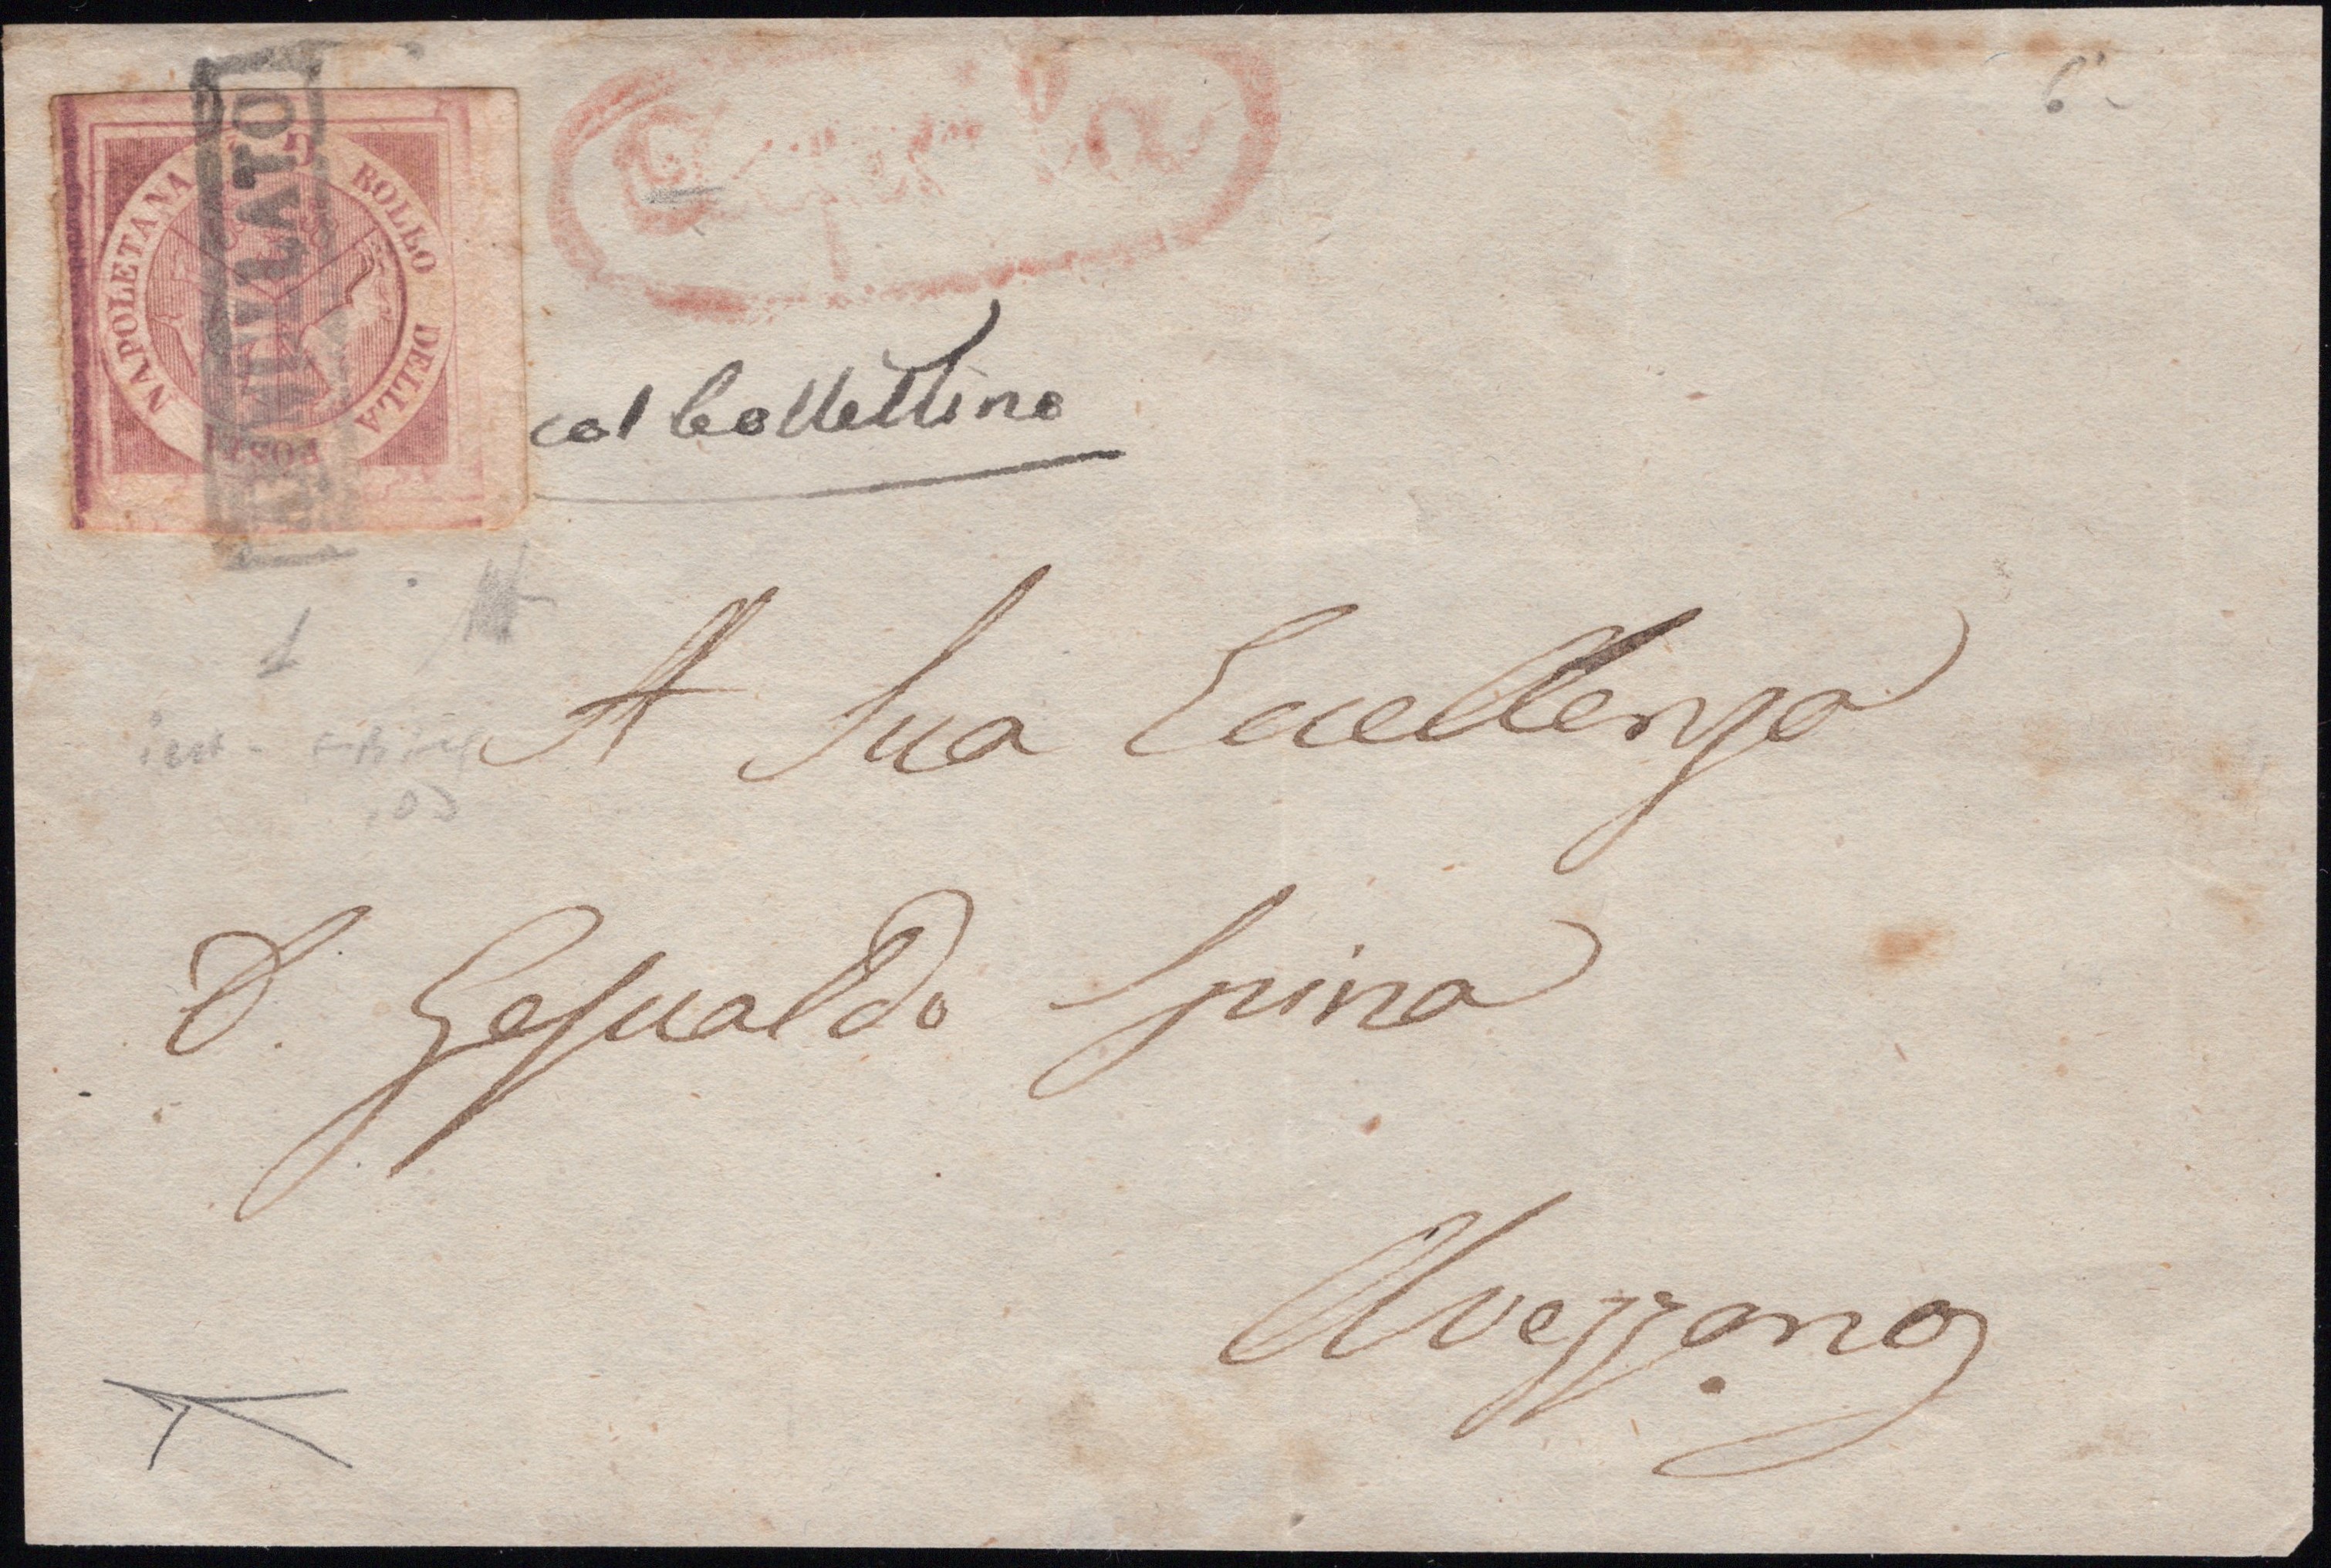 BOLLO DELLA POSTA NAPOLETANA
ANNULLATO
col bollettino
A Sua Eccellenza
D. Gesualdo Spina
Avezzano